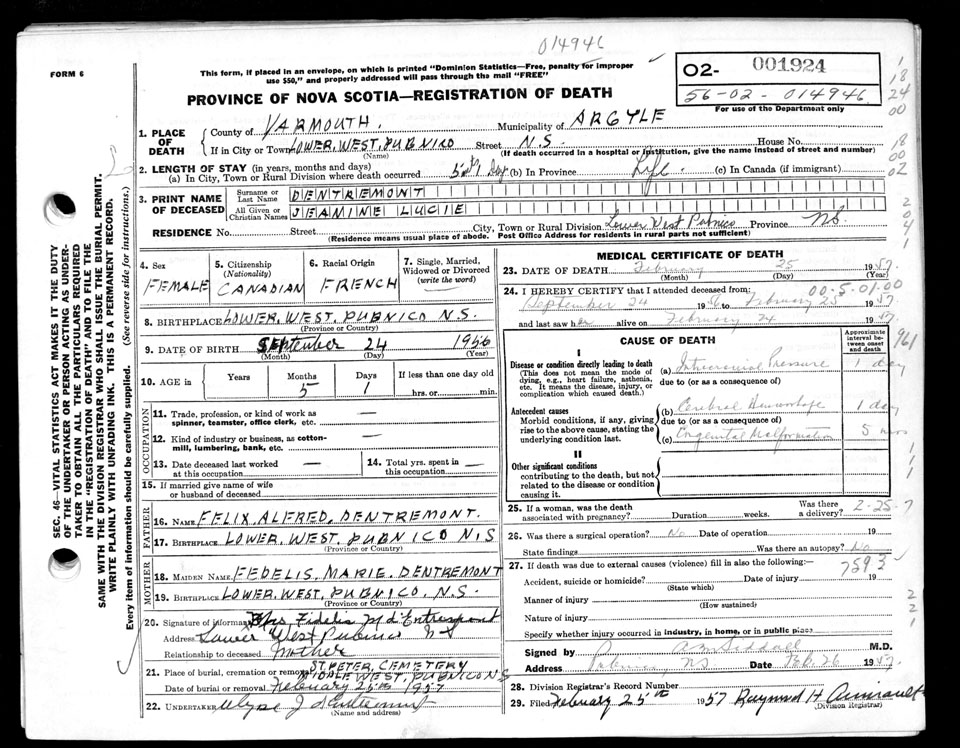 014946
FORM 6
This form, if placed in an envelope, on which is printed "Dominion Statistics—Free, penalty for improper
use $50," and properly addressed will pass through the mail "FREE"
O2- 001924
56-02-014946
For use of the Department only
PROVINCE OF NOVA SCOTIA—REGISTRATION OF DEATH
1. PLACE OF DEATH
County of YARMOUTH. Municipality of ARGYLE
If in City or Town LOWER, WEST, PUBNICO Street N.S. House No.
(Name) (If death occurred in a hospital or institution, give the name instead of street and number)
2. LENGTH OF STAY (in years, months and days)
(a) In City, Town or Rural Division where death occurred (b) In Province Life. (c) In Canada (if immigrant)
3. PRINT NAME OF DECEASED
Surname or Last Name DENTREMONT
All Given or Christian Names JEAMINE LUCIE
RESIDENCE No. Street City, Town or Rural Division Lower West Pubnico Province NS.
(Residence means usual place of abode. Post Office Address for residents in rural parts not sufficient)
4. SEX FEMALE
5. CITIZENSHIP (Nationality) CANADIAN
6. Racial Origin FRIENCH
7. Single, Married, Widowed or Divorced (write the word)
8. BIRTHPLACE LOWER, WEST, PUBNICO N.S.
(Province or Country)
9. DATE OF BIRTH September 24 1956
(Month) (Day) (Year)
10. AGE in Years Months Days If less than one day old
5 1 hrs. or min.
OCCUPATION
11. Trade, profession, or kind of work as spinner, teamster, office clerk, etc. —
12. Kind of industry or business, as cotton-mill, lumbering, bank, etc. —
13. Date deceased last worked at this occupation —
14. Total yrs. spent in this occupation —
15. If married give name of wife or husband of deceased
FATHER
16. NAME FELIX, ALFRED, DENTREMONT.
17. BIRTHPLACE LOWER, WEST, PUBNICO N,S
(Province or Country)
MOTHER
18. MAIDEN NAME FEDELIS, MARIE, DENTREMONT
19. BIRTHPLACE LOWER, WEST, PUBNICO, N.S.
(Province or Country)
20. Signature of informant Mrs. Fidelis M d'Entremont
Address Lower West Pubnico NS
Relationship to deceased Mother
21. Place of burial, cremation or removal ST. PETER, CEMETERY
MIDDLE WEST, PUBNICO N S
Date of burial or removal February 25th 1957
22. UNDERTAKER Ulysse J d'Entremont
(Name and address)
MEDICAL CERTIFICATE OF DEATH
23. DATE OF DEATH February 25 1957.
(Month) (Day) (Year)
24. I HEREBY CERTIFY that I attended deceased from: 00-5-01.00
September 24 1956 to February 25 1957.
and last saw her alive on February 24 1957
CAUSE OF DEATH
Approximate interval between onset and death
961
I
Disease or condition directly leading to death
(This does not mean the mode of dying, e.g., heart failure, asthenia, etc. It means the disease, injury, or complication which caused death.)
(a) Intracranial Pressure 1 day
due to (or as a consequence of)
Antecedent causes
Morbid conditions, if any, giving rise to the above cause, stating the underlying condition last.
(b) Cerebral Hemorrhage 1 day
due to (or as a consequence of)
(c) Congenital Malformation 5 mos
II
Other significant conditions
contributing to the death, but not related to the disease or condition causing it.
25. If a woman, was the death associated with pregnancy? Duration weeks. Was there a delivery? 2-25-7
26. Was there a surgical operation? No Date of operation 19
State findings Was there an autopsy? No
27. If death was due to external causes (violence) fill in also the following:— 7593
Accident, suicide or homicide? Date of injury 19
(State which)
Manner of injury
(How sustained)
Nature of injury
Specify whether injury occurred in industry, in home, or in public place
Signed by M.D.
Address Pubnico, NS Date Feb. 26 1957.
28. Division Registrar's Record Number
29. Filed February 25th 1957 Raymond H Amirault
(Division Registrar)
SEC. 46—VITAL STATISTICS ACT MAKES IT THE DUTY
OF THE UNDERTAKER OR PERSON ACTING AS UNDER-
TAKER TO OBTAIN ALL THE PARTICULARS REQUIRED
IN THE "REGISTRATION OF DEATH" AND TO FILE THE
SAME WITH THE DIVISION REGISTRAR WHO SHALL ISSUE THE BURIAL PERMIT.
WRITE PLAINLY WITH UNFADING INK. THIS IS A PERMANENT RECORD.
Every item of information should be carefully supplied. (See reverse side for instructions.)